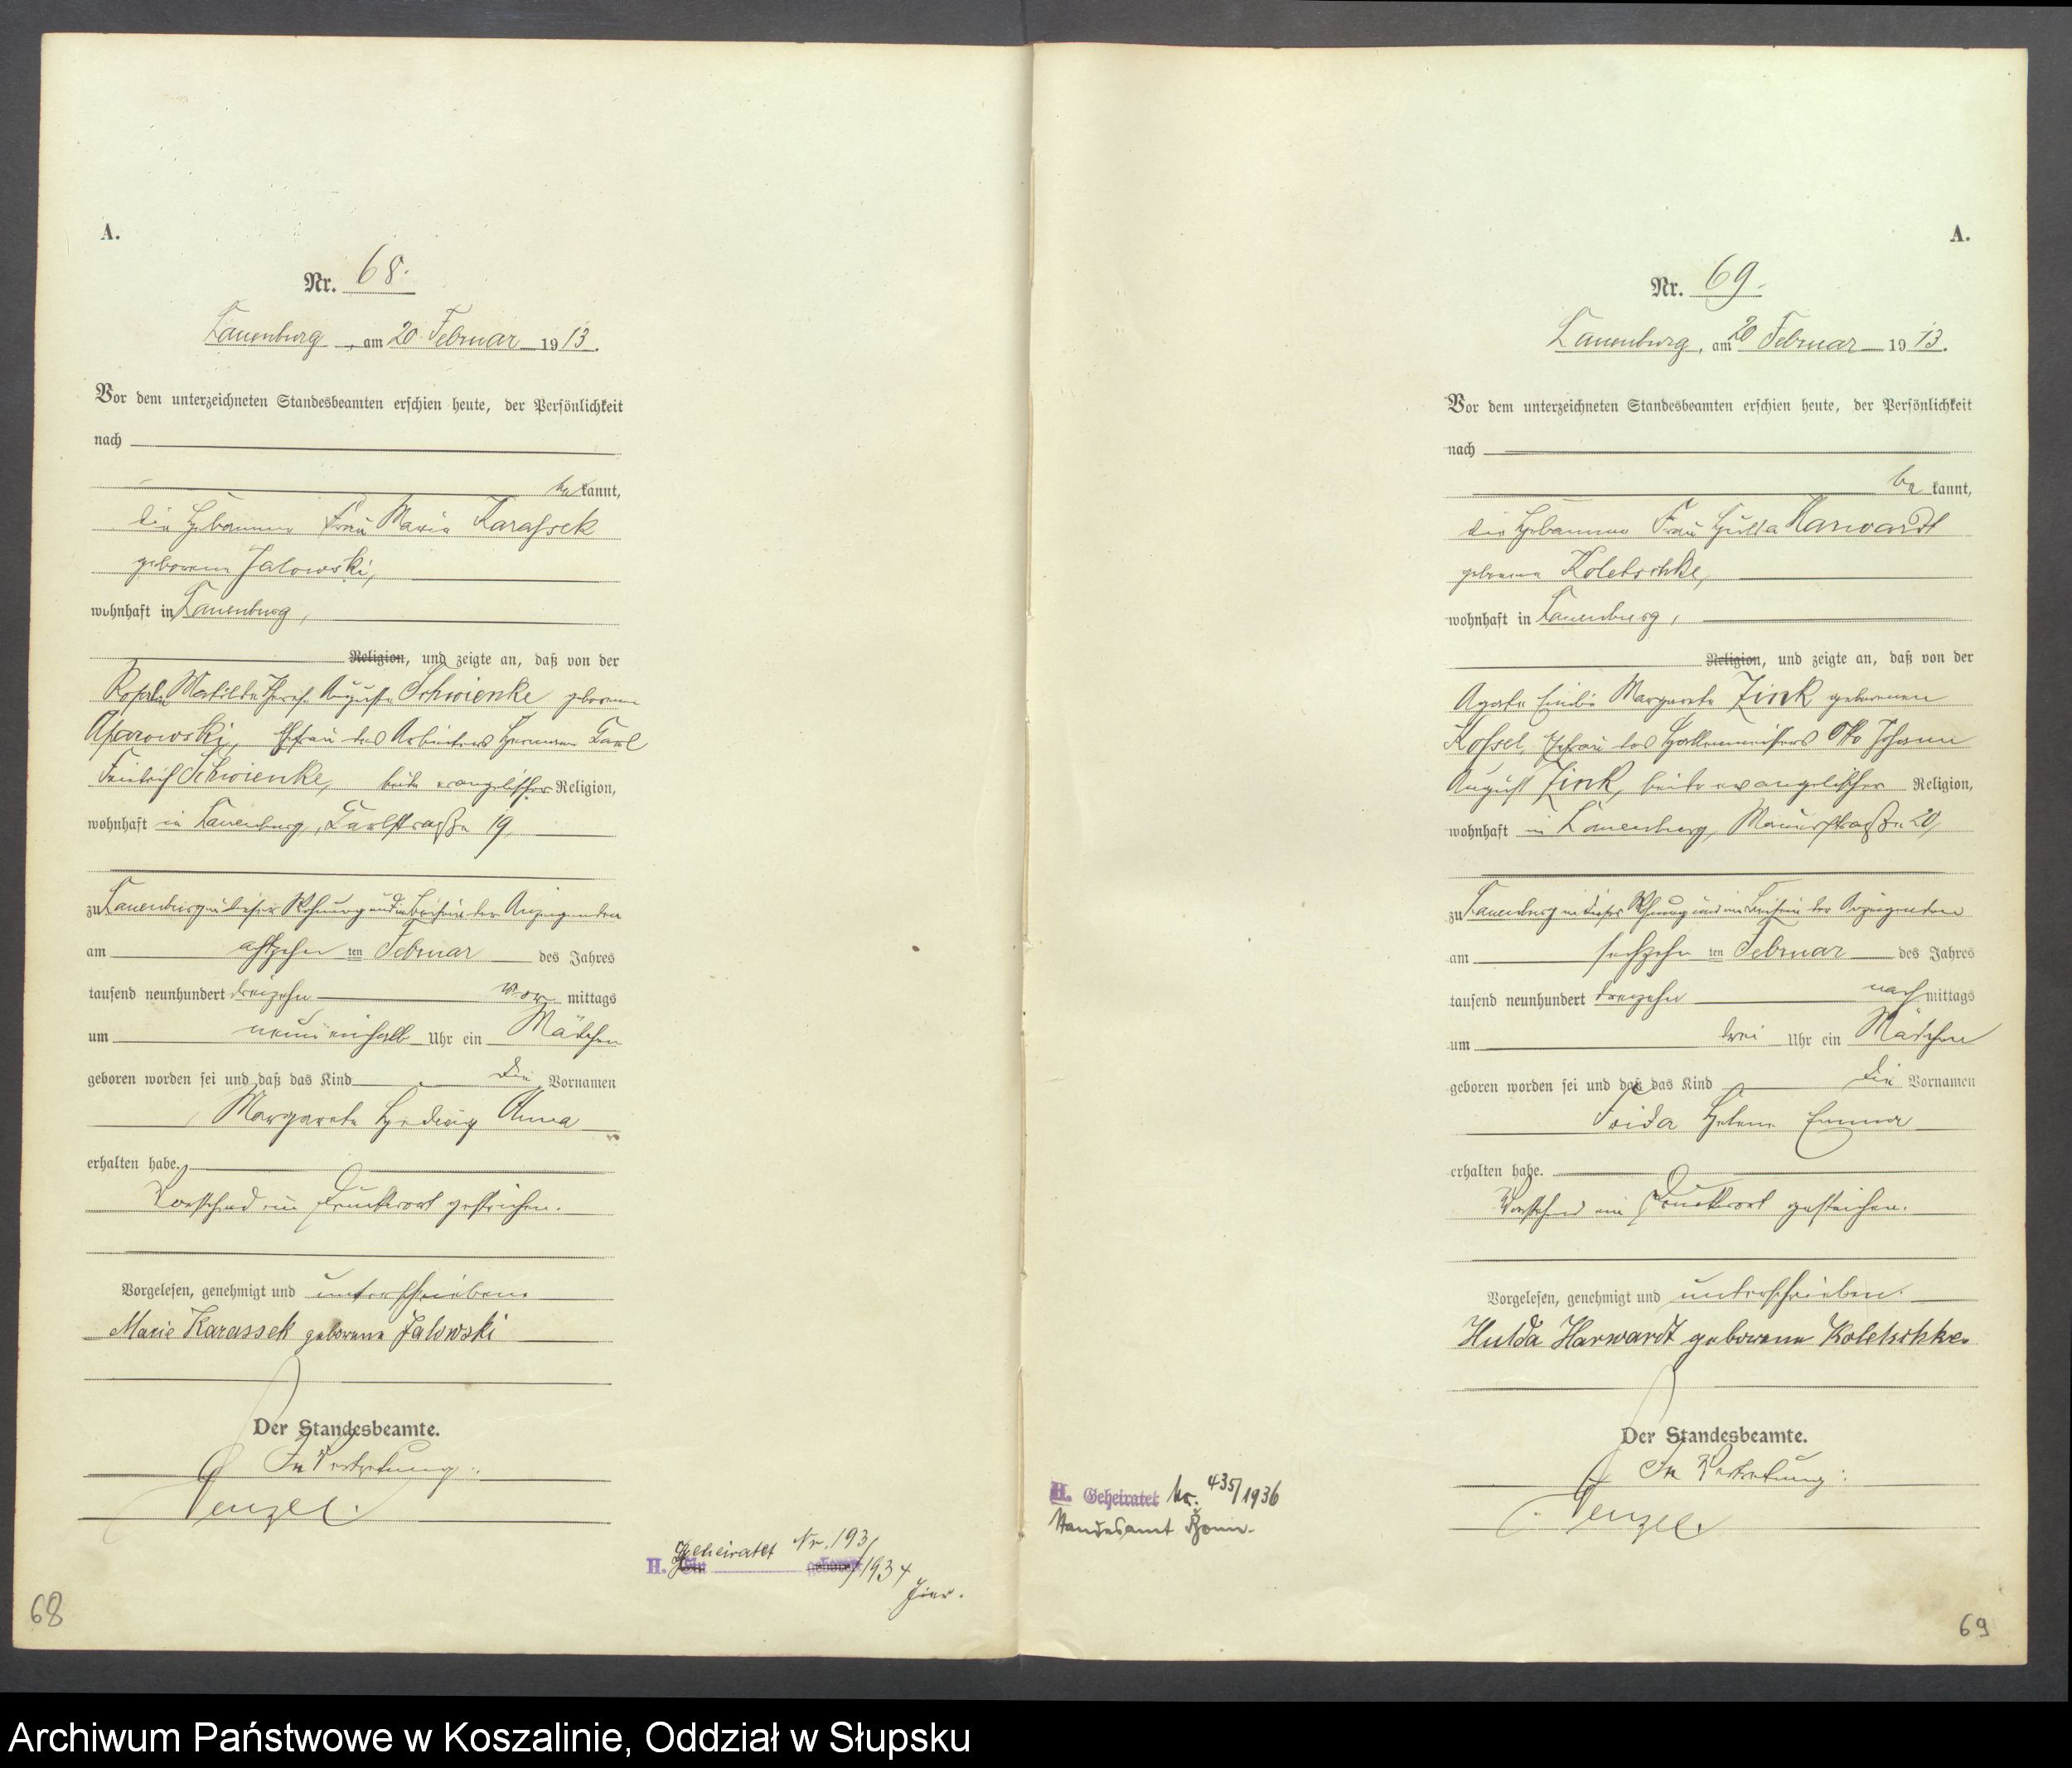 A.
Nr. 68.
Lauenburg, am 20. Februar 1913.
Vor dem unterzeichneten Standesbeamten erschien heute, der Persönlichkeit
nach
be kannt,
die Hebamme Frau Maria Karassek
geborene Jalowski,
wohnhaft in Lauenburg,
Religion, und zeigte an, daß von der
Rosalie Matilde Auguste Schwienke geborene
Ehefrau des Arbeiters Hermann Carl
Friedrich Schwienke, beide evangelischer Religion,
wohnhaft in Lauenburg, Carlstraße 19,
zu Lauenburg in dieser Wohnung und in Beisein der Anzeigenden
am achtzehn ten Februar des Jahres
tausend neunhundert dreizehn vor mittags
um neuneinhalb Uhr ein Mädchen
geboren worden sei und daß das Kind die Vornamen
Margarete Hedwig Anna
erhalten habe.
Vorstehend ein Druckwort gestrichen.
Vorgelesen, genehmigt und unterschrieben
Marie Karassek geborene Jalowski
Der Standesbeamte.
In Vertretung:
Wenzel.
H. Geheiratet Nr. 193/1934
hier.
68
A.
Nr. 69.
Lauenburg, am 20 Februar 1913.
Vor dem unterzeichneten Standesbeamten erschien heute, der Persönlichkeit
nach
be kannt,
die Hebamme Frau Hulda Harwardt
geborene Koletschke,
wohnhaft in Lauenburg,
Religion, und zeigte an, daß von der
Agate Emilie Margarete Zink geborenen
Kossel, Ehefrau des Otto Johann
August Zink, beide evangelischer Religion,
wohnhaft in Lauenburg, Mauerstraße 20,
zu Lauenburg in dieser Wohnung und in Beisein der Anzeigenden
am sechzehn ten Februar des Jahres
tausend neunhundert dreizehn nach mittags
um drei Uhr ein Mädchen
geboren worden sei und daß das Kind die Vornamen
Frida Helene Emma
erhalten habe.
Vorstehend ein Druckwort gestrichen.
Vorgelesen, genehmigt und unterschrieben.
Hulda Harwardt geborene Koletschke.
Der Standesbeamte.
In Vertretung:
Wenzel.
H. Geheiratet Nr. 435/1936
Standesamt Bonn.
69
Archiwum Państwowe w Koszalinie, Oddział w Słupsku